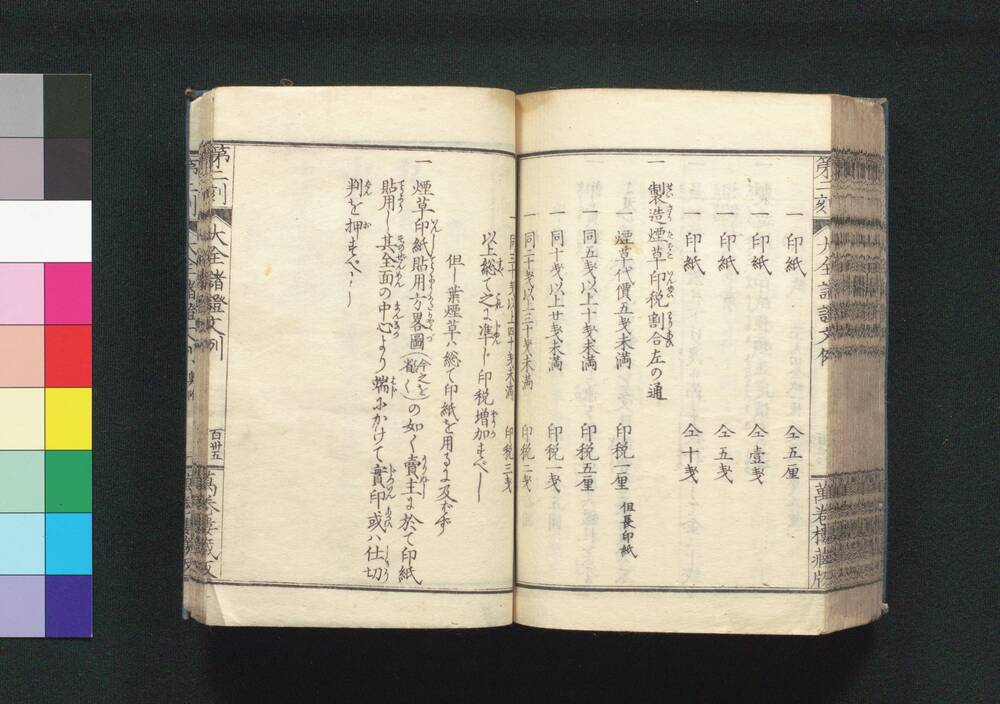 第二刻
大全諸證文例
萬巻樓蔵版
一 印紙 仝五厘
一 印紙 仝壹戔
一 印紙 仝五戔
一 印紙 仝十戔
一 製造煙草印税割合左の通
一 煙草代價五戔未満 印税一厘 但長印紙
一 同五戔以上十戔未満 印税五厘
一 同十戔以上廿戔未満 印税一戔
一 同二十戔以上三十戔未満 印税二戔
一 同三十戔以上四十戔未満 印税三戔
以上総て之に準じ印税増加すべし
但し葉煙草ハ総て印紙を用るに及ばず
一 煙草印紙貼用方畧圖(今之を省く)の如く賣主に於て印紙
貼用し其全面の中心より端にかけて實印或ハ仕切
判を押すべし
第二刻
大全諸證文例
百卅五
萬巻樓蔵版